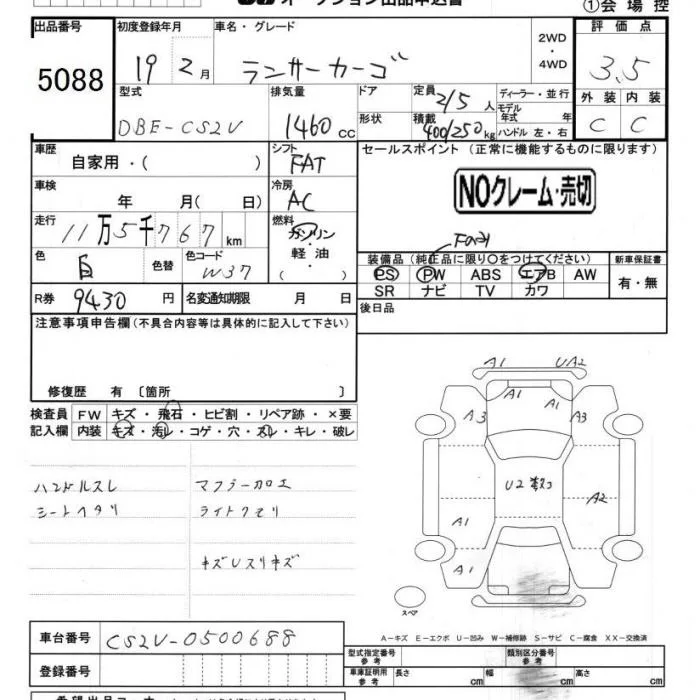 オークション出品申込書 ①会場控
出品番号 初度登録年月 車名・グレード 評価点
5088 19 2月 ランサーカーゴ 2WD・4WD 3.5
型式 排気量 ドア 定員 2/5人 ディーラー・並行 外装 内装
DBE-CS2V 1460cc 形状 積載 400/250kg モデル年式 年 ハンドル左・右 C C
車歴 自家用・( ) シフト FAT セールスポイント(正常に機能するものに限ります)
車検 年 月(日) 冷房 AC NOクレーム・売切
走行 11万5千767km 燃料 ガソリン・軽油・( )
色 白 色替 色コード W37 装備品(純正品に限り○をつけてください) 新車保証書
PS PW ABS エアB AW 有・無
SR ナビ TV カワ
R券 9430円 名変通知期限 月 日 後日品
注意事項申告欄(不具合内容等は具体的に記入して下さい)
修復歴 有〔箇所 〕
検査員 FW キズ・飛石・ヒビ割・リペア跡・×要
記入欄 内装 キズ・汚レ・コゲ・穴・スレ・キレ・破レ
A1 UA2
A1 A1
A3 A3
ハンドルスレ マフラー加工
シートヘタリ ライトクモリ
U2
A2
A1
キズUスリキズ
A1
スペア
A-キズ E-エクボ U-凹み W-補修跡 S-サビ C-腐食 XX-交換済
車台番号 CS2V-0500688
型式指定番号 参考 類別区分番号 参考
登録番号 車庫証明用 参考 長さ cm 幅 cm 高さ cm